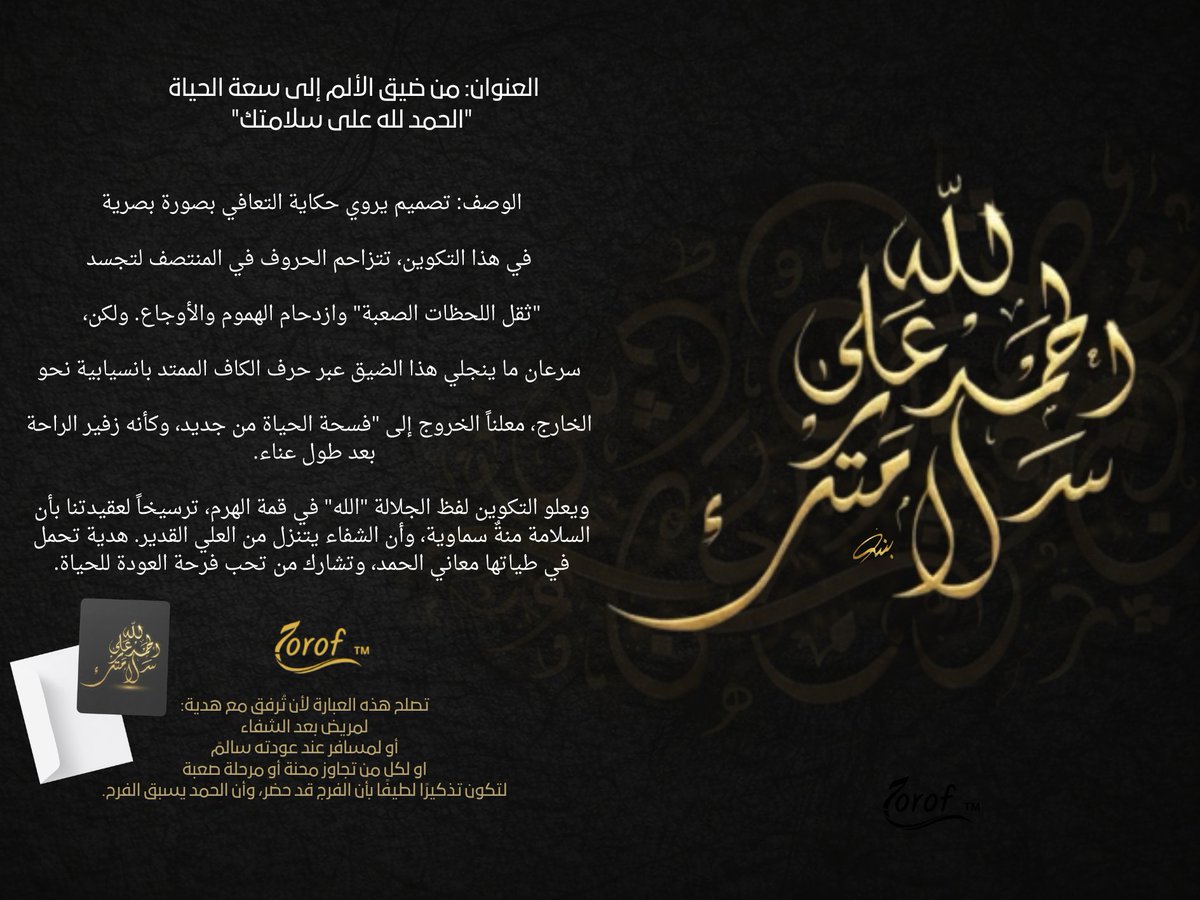 العنوان: من ضيق الألم إلى سعة الحياة
"الحمد لله على سلامتك"
الوصف: تصميم يروي حكاية التعافي بصورة بصرية
في هذا التكوين، تتزاحم الحروف في المنتصف لتجسد
"ثقل اللحظات الصعبة" وازدحام الهموم والأوجاع. ولكن،
سرعان ما ينجلي هذا الضيق عبر حرف الكاف الممتد بانسيابية نحو
الخارج، معلناً الخروج إلى "فسحة الحياة من جديد، وكأنه زفير الراحة
بعد طول عناء.
ويعلو التكوين لفظ الجلالة "الله" في قمة الهرم، ترسيخاً لعقيدتنا بأن
السلامة منةٌ سماوية، وأن الشفاء يتنزل من العلي القدير. هدية تحمل
في طياتها معاني الحمد، وتشارك من تحب فرحة العودة للحياة.
الحمد لله على سلامتك
7orof TM
تصلح هذه العبارة لأن تُرفق مع هدية:
لمريض بعد الشفاء
أو لمسافر عند عودته سالمً
او لكل من تجاوز محنة أو مرحلة صعبة
لتكون تذكيرًا لطيفًا بأن الفرج قد حضر، وأن الحمد يسبق الفرح.
الحمد لله على سلامتك
7orof TM